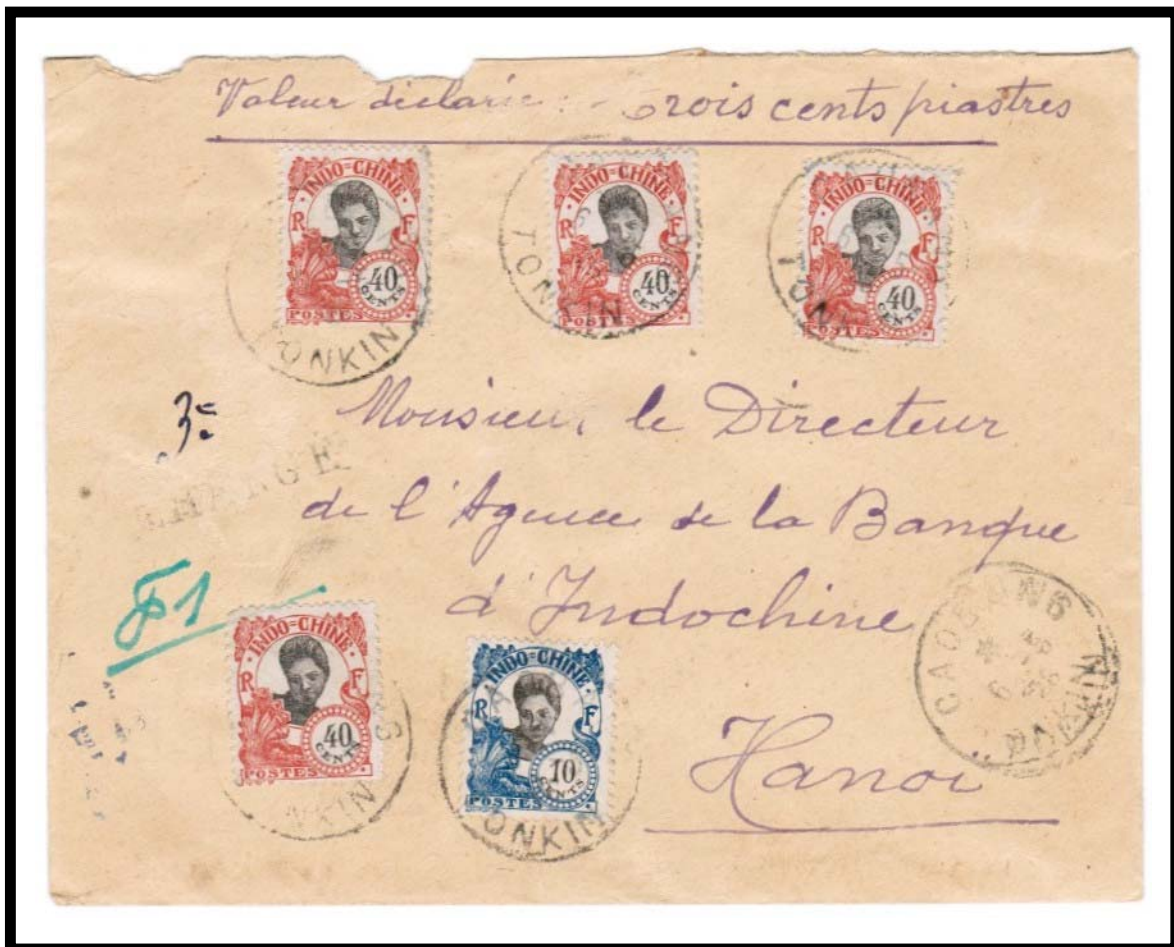 Valeur déclarée : Trois cents piastres
INDO=CHINE
R F
40
CENTS
POSTES
TONKIN
INDO=CHINE
R F
40
CENTS
POSTES
TONKIN
INDO=CHINE
R F
40
CENTS
POSTES
TONKIN
Monsieur le Directeur
de l'Agence de la Banque
d'Indochine
Hanoi
INDO=CHINE
R F
40
CENTS
POSTES
INDO=CHINE
R F
10
CENTS
POSTES
TONKIN
CAOBANG
TONKIN